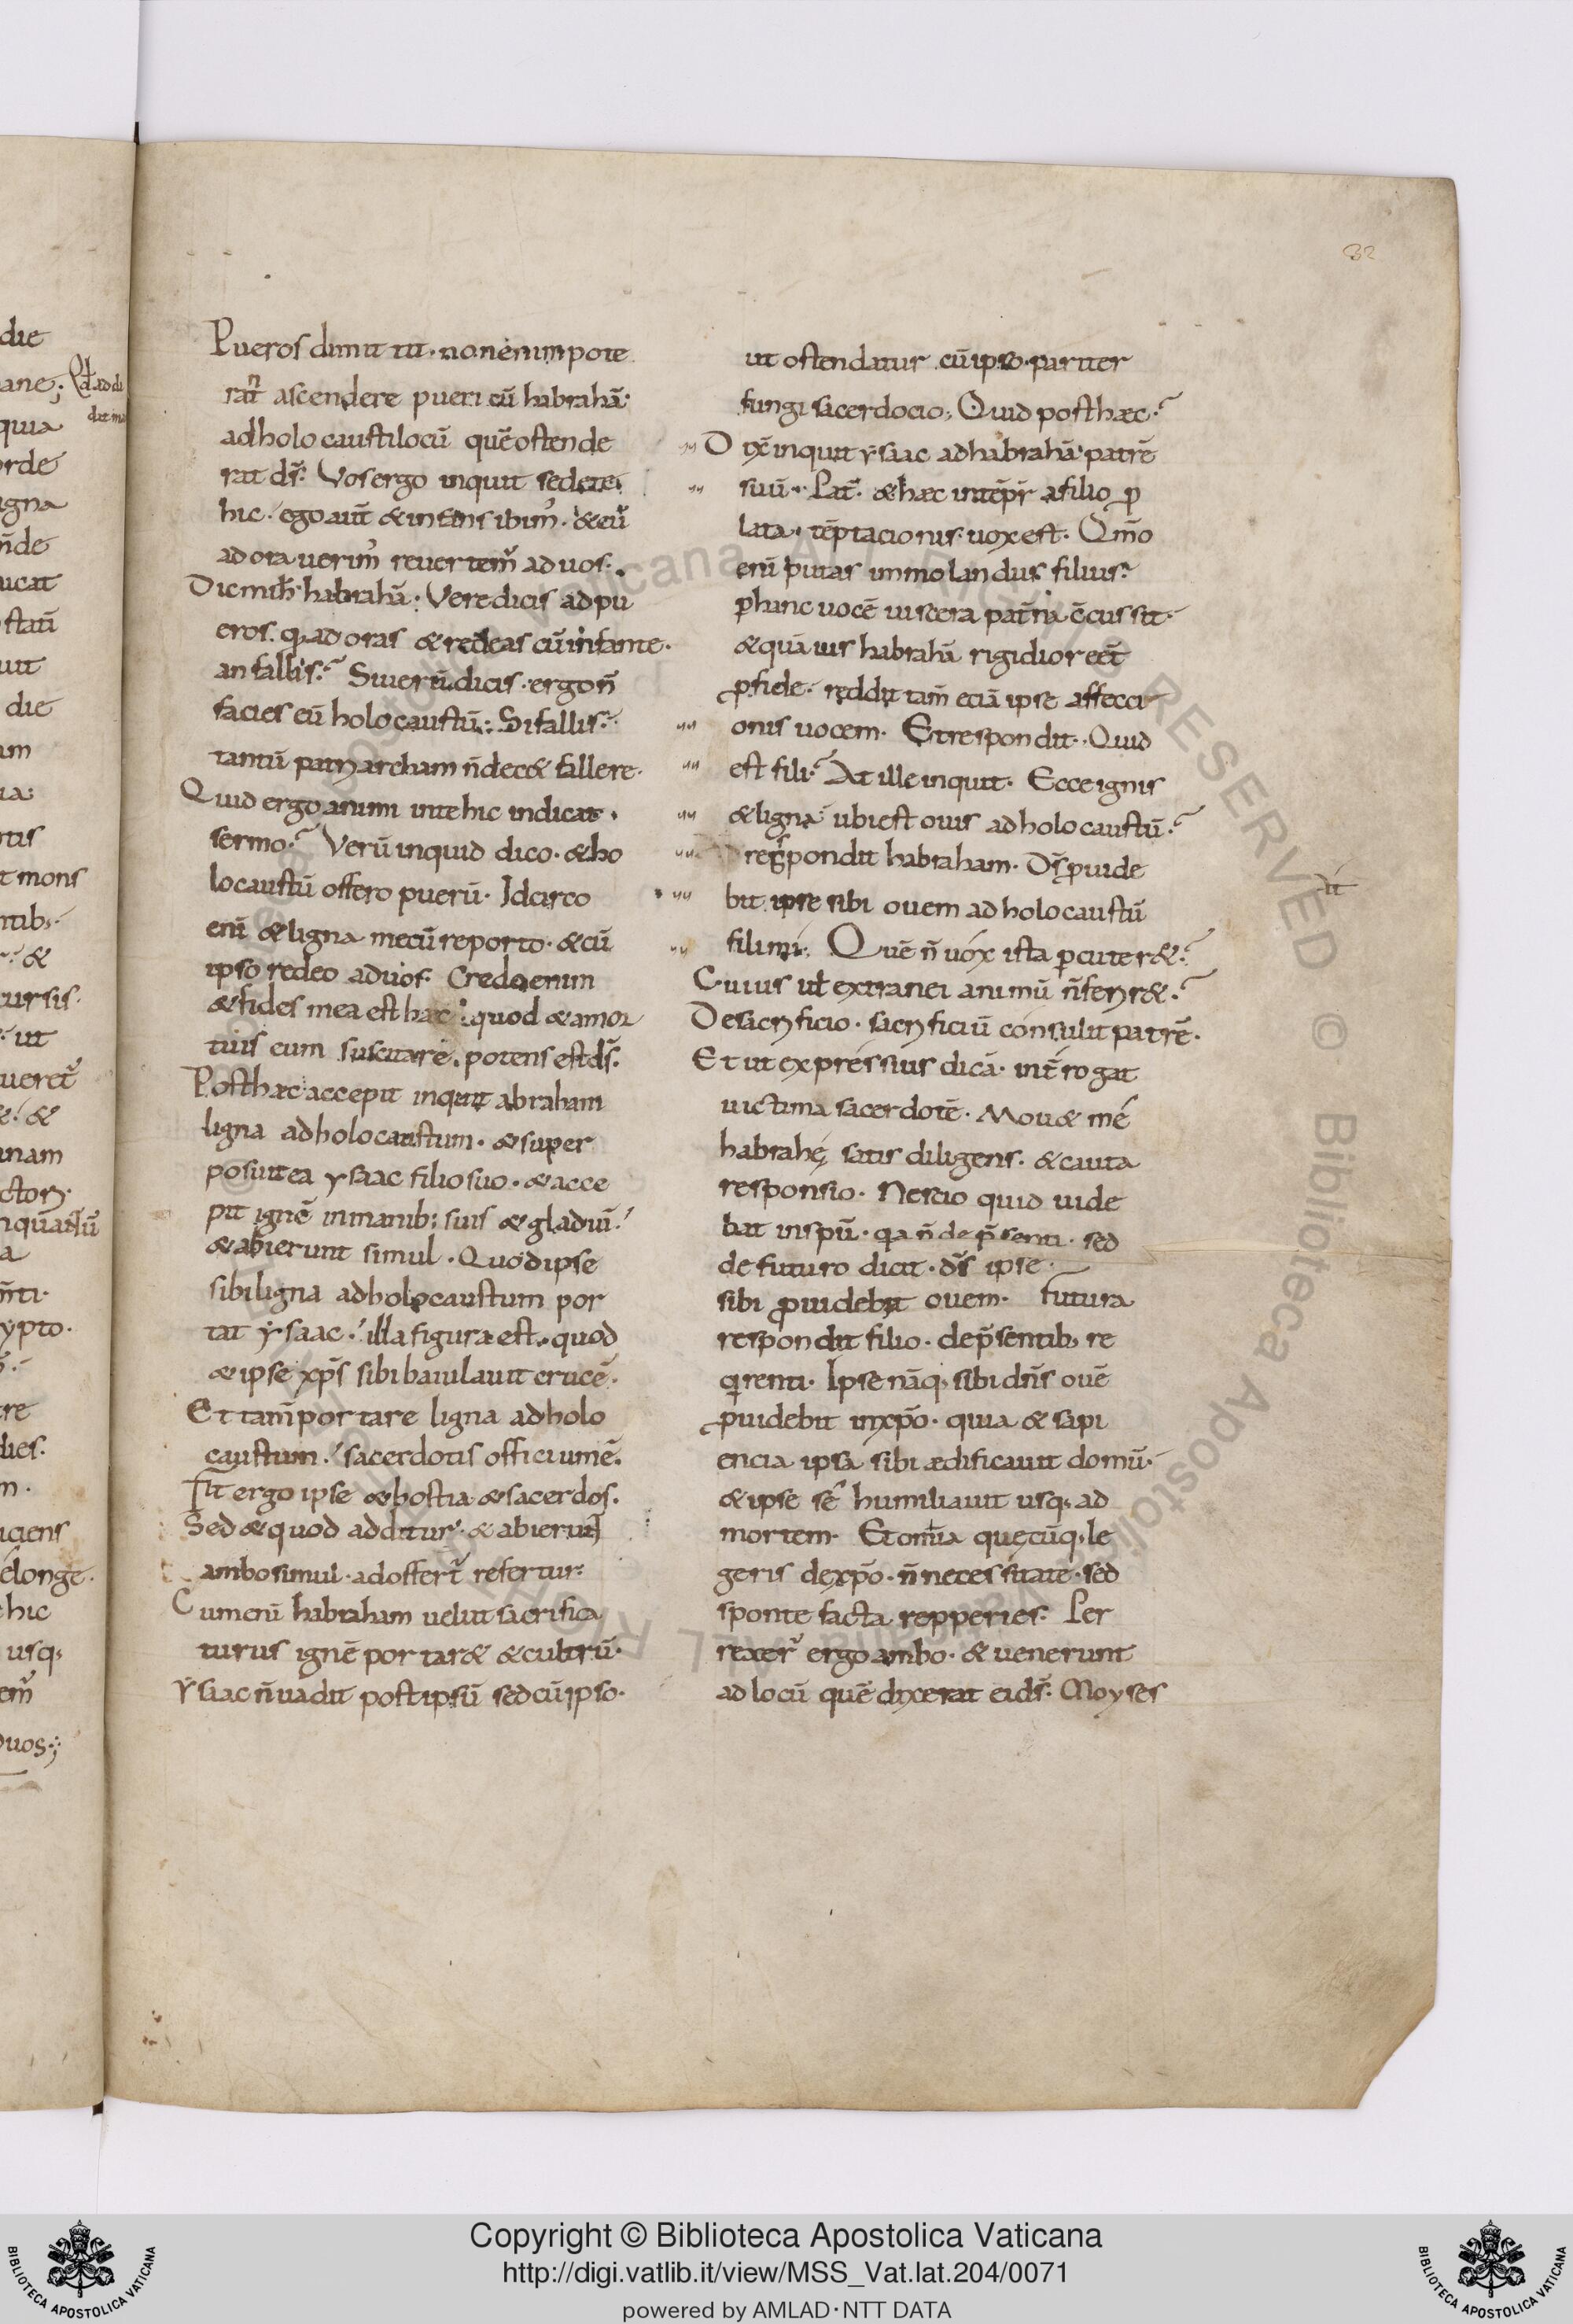 32
Pueros dimittit. non enim pote
rañt ascendere pueri cū habrahā.
ad holocausti locū quē ostende
rat ds̄. Vos ergo inquit sedete
hic. ego aut̄ & infans ibim᾿. & cū
adoraverim᾿ revertem᾿ ad vos.
Dic mih̄ habrahā. Vere dicis ad pu
eros. q adoras & redeas cū infante.
an fallis? Si verū dicis. ergo n̄
facies eū holocaustū. Si fallis.
tantū patriarcham n̄ dec& fallere.
Quid ergo animi in te hic indicat.
sermo? Verū inquid dico. & ho
locaustū offero puerū. Idcirco
enī & ligna mecū reporto. & cū
ipso redeo ad vos. Credo enim
& fides mea est haec quod & amor
tuis cum suscitare. potens est ds̄.
Post haec accepit inquit abraham
ligna ad holocaustum. & super
posuit ea ysaac filio suo. & acce
pit ignē in manib; suis & gladiū.
& abierunt simul. Quod ipse
sibi ligna ad holocaustum por
tat ysaac. illa figura est. quod
& ipse xp̄s sibi baiulavit crucē.
Et tam̄ portare ligna ad holo
caustum. sacerdotis officium ē.
Fit ergo ipse & hostia & sacerdos.
Sed & quod additur. & abierunt
ambo simul. ad offert᾿ refertur.
Cum enī habraham velut sacrifica
turus ignē portar& & cultrū.
Ysaac n̄ vadit post ipsū sed cū ipso.
ut ostendatur cū ipso pariter
fungi sacerdocio; Quid post haec?
Dix̄ inquit ysaac ad habrahā patrē
suū. Pat̄. & haec intēpr̄ a filio p
lata. tēptacionis vox est. Qm̄o
enī putas immolandus filius
p hanc vocē viscera pat̄na c̄cussit.
& quāvis habrahā rigidior eēt
p fide. reddit tam̄ eciā ipse affecci
onis vocem. Et respondit. Quid
est fili? At ille inquit. Ecce ignis
& ligna ubi est ovis ad holocaustū?
respondit habraham. Ds̄ pvide
bit ipse sibi ovem ad holocaustū
fili mi. Quē n̄ vox ista pcuter&?
Cuius ul̄ extranei animū n̄ feri&?
De sacrificio. sacrificiū consulit patrē.
Et ut expressius dicā. int̄rogat
victima sacerdotē. Mov& mé
habrahę satis diligens. & cauta
responsio. Nescio quid vide
bat in spū. qa n̄ de p̄senti. sed
de futuro dicit. ds̄ ipse
sibi pvidebit ovem. Futura
respondit filio. de p̄sentib; re
qirenti. Ipse nāq; sibi dn̄s ovē
pvidebit in xp̄o. quia & sapi
encia ipsa sibi aedificavit domū.
& ipse sé humiliavit usq; ad
mortem. Et om̄ia quęcūq; le
geris de xp̄o. n̄ necessitate. sed
sponte facta repperies. Per
rexer᾿ ergo ambo. & venerunt
ad locū quē dixerat ei ds̄. Moyses
Copyright © Biblioteca Apostolica Vaticana
http://digi.vatlib.it/view/MSS_Vat.lat.204/0071
powered by AMLAD·NTT DATA